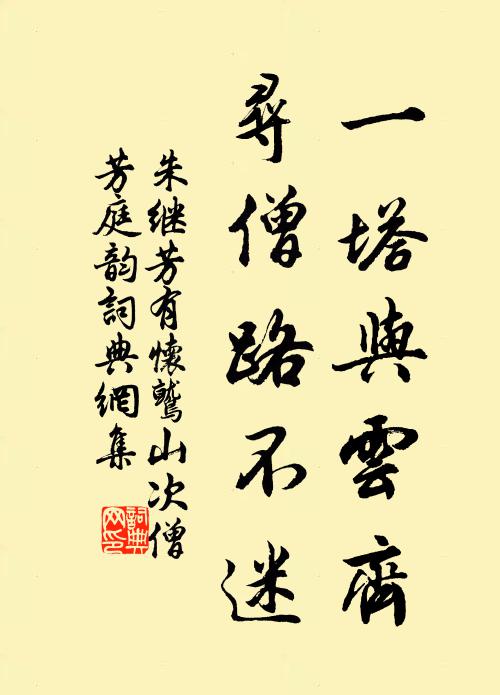 一塔與雲齊
尋僧路不迷
朱继芳有懷鷲山次僧
芳庭韵詞典網集
詞典
网印